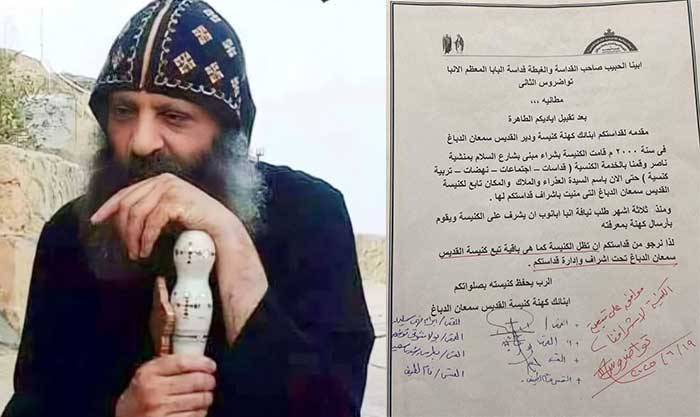 ابينا الحبيب صاحب القداسة والغبطة قداسة البابا المعظم الانبا
تواضروس الثانى
مطانيه ،،،
بعد تقبيل اياديكم الطاهرة
مقدمه لقداستكم ابنائك كهنة كنيسة ودير القديس سمعان الدباغ
فى سنة ٢٠٠٠ م قامت الكنيسة بشراء مبنى بشارع السلام بمنشية
ناصر وقمنا بالخدمة الكنسية ( قداسات – اجتماعات – نهضات – تربية
كنسية ) حتى الان باسم السيدة العذراء والملاك والمكان تابع لكنيسة
القديس سمعان الدباغ التى منيت باشراف قداستكم لها .
ومنذ ثلاثة اشهر طلب نيافة انبا ابانوب ان يشرف على الكنيسة ويقوم
بأرسال كهنة بمعرفته
لذا نرجو من قداستكم ان تظل الكنيسة كما هى باقية تبع كنيسة القديس
سمعان الدباغ تحت اشراف وإدارة قداستكم .
الرب يحفظ كنيسته بصلواتكم
ابنائك كهنة كنيسة القديس سمعان الدباغ
موافق على
الكنيسة لاشرافنا
تواضروس